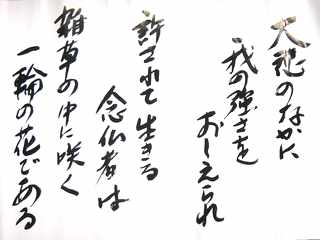 大悲のなかに
我の強さを
おしえられ
許されて生きる
念仏者は
雑草の中に咲く
一輪の花である